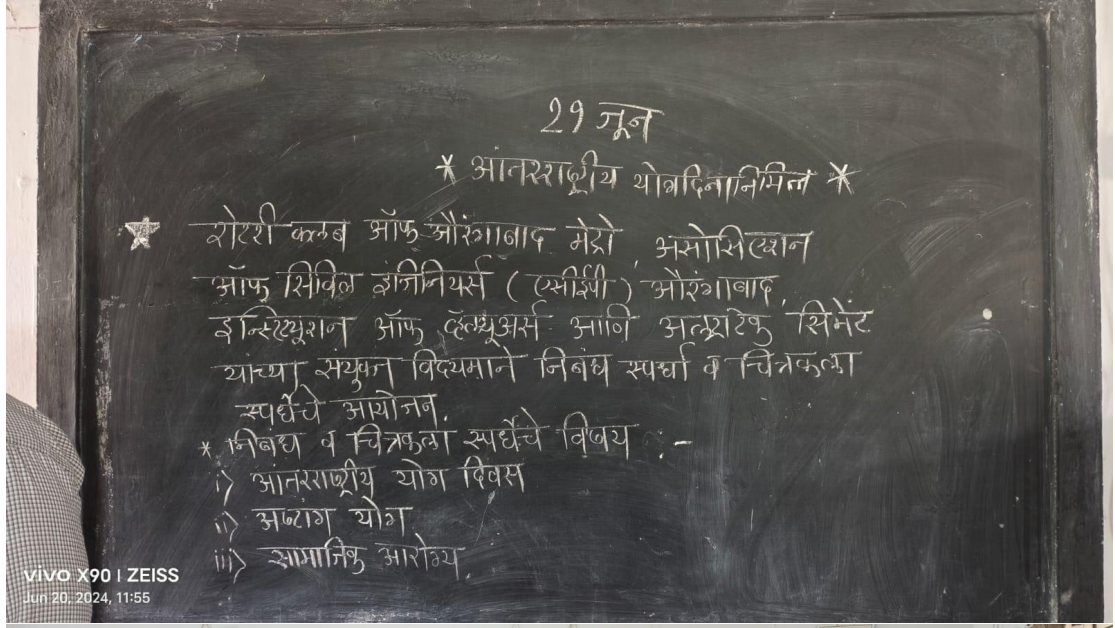 २१ जून
* आंतरराष्ट्रीय योगदिनानिमित्त *
★ रोटरी क्लब ऑफ औरंगाबाद मेट्रो, असोसिएशन
ऑफ सिविल इंजिनियर्स (एसीईपी) औरंगाबाद,
इन्स्टिट्यूशन ऑफ व्हॅल्यूअर्स आणि अल्ट्राटेक सिमेंट
यांच्या संयुक्त विद्यमाने निबंध स्पर्धा व चित्रकला
स्पर्धेचे आयोजन.
* निबंध व चित्रकला स्पर्धेचे विषय :-
i) आंतरराष्ट्रीय योग दिवस
ii) अष्टांग योग.
iii) सामाजिक आरोग्य.
vivo X90 | ZEISS
Jun 20, 2024, 11:55